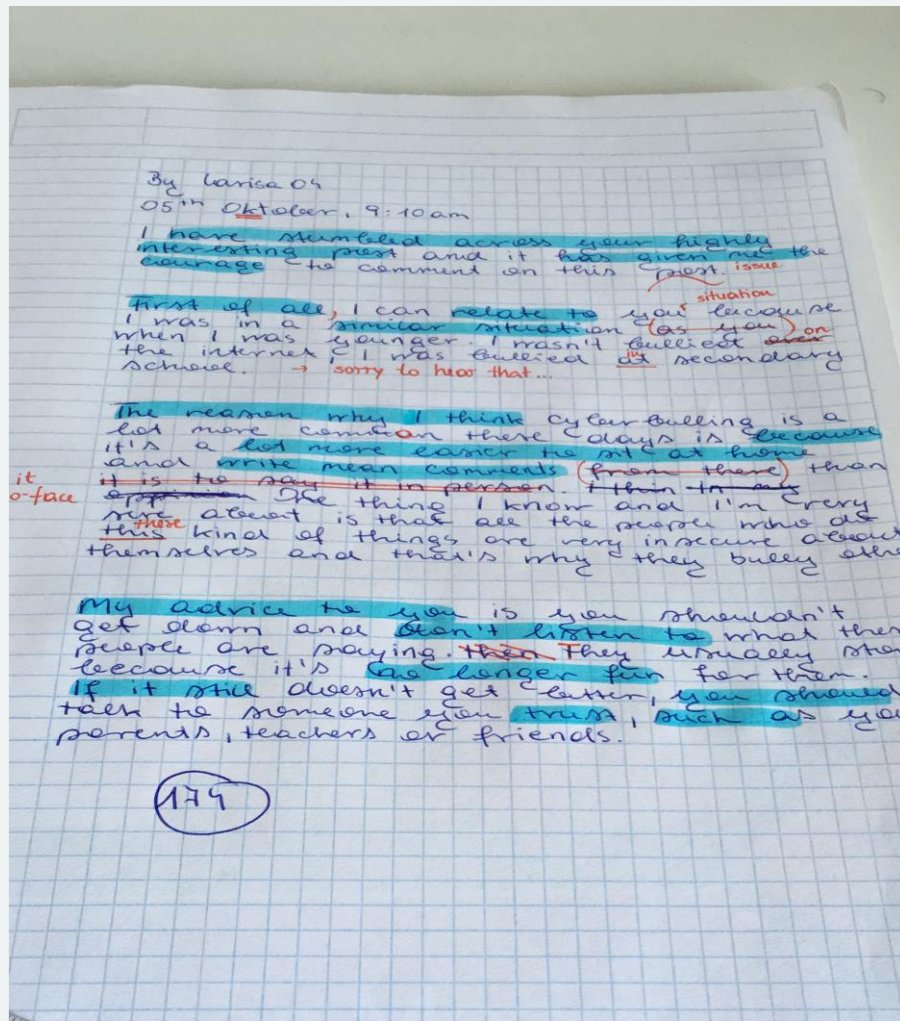 By Larisa 04
05th Oktober, 9:10am
I have stumbled across your highly
interesting post and it has given me the
courage to comment on this post. issue
situation
first of all, I can relate to you because
I was in a similar situation (as you)
when I was younger. I wasn't bullied over on
the internet, I was bullied at in secondary
school. → sorry to hear that...
The reason why I think cyberbulling is a
lot more common these days is because
it's a lot more easier to sit at home
and write mean comments (from there) than
it is to say it in person. I thin in my
it
o-face
oppinion One thing I know and I'm very
sure about is that all the people who do
these
this kind of things are very insecure about
themselves and that's why they bully othe
My advice to you is you shouldn't
get down and don't listen to what the
people are saying. then They usually sto
beecause it's no longer fun for them.
If it still doesn't get better, you should
talk to someone you trust, such as you
parents, teachers or friends.
174